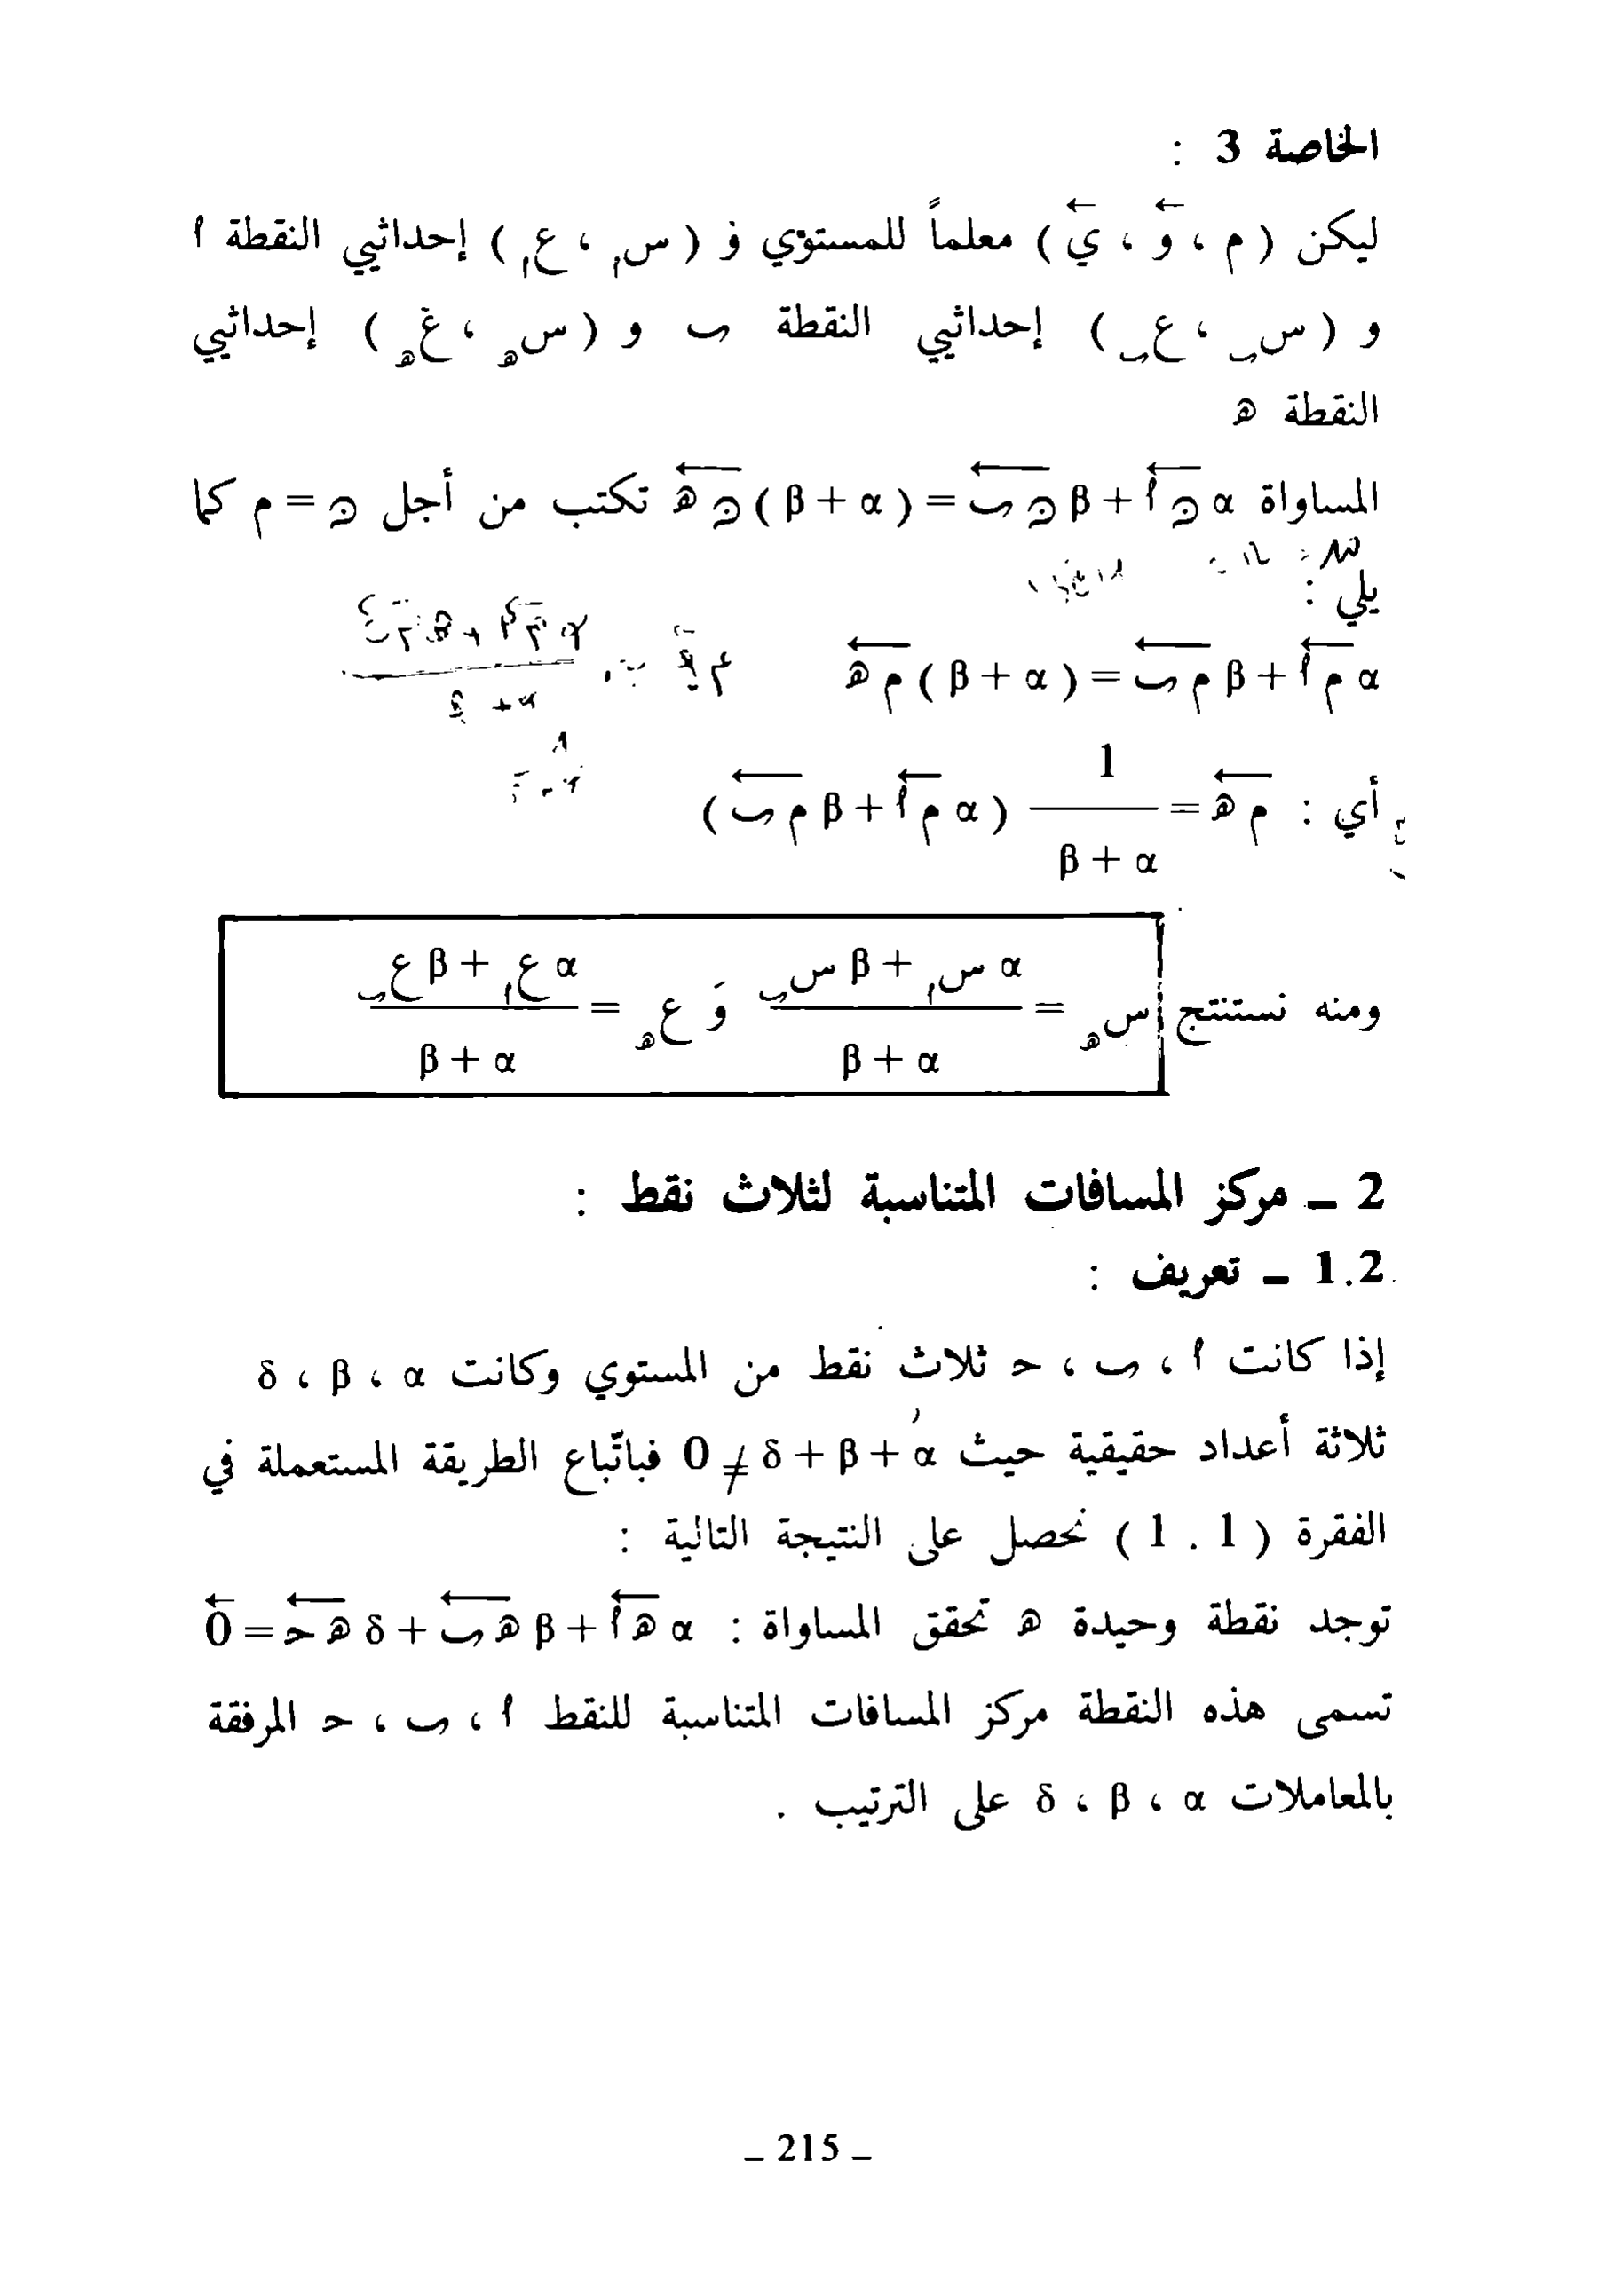 الخاصة 3 :
ليكن ( م ، و⃗ ، ي⃗ ) معلماً للمستوي و ( س₁ ، ع₁ ) إحداثيي النقطة ا
و ( س ب ، ع ب ) إحداثيي النقطة ب و ( س ه ، ع ه ) إحداثيي
النقطة ه
المساواة α ن ا + β ن ب = ( α + β ) ن ه تكتب من أجل ن = م كما
يلي :
α م ا + β م ب = ( α + β ) م ه
أي : م ه = 1 / ( α + β ) ( α م ا + β م ب )
ومنه نستنتج س ه = ( α س ا + β س ب ) / ( α + β ) وَ ع ه = ( α ع ا + β ع ب ) / ( α + β )
2 ـ مركز المسافات المتناسبة لثلاث نقط :
1.2 ـ تعريف :
إذا كانت ا ، ب ، حـ ثلاث نقط من المستوي وكانت α ، β ، δ
ثلاثة أعداد حقيقية حيث α + β + δ ≠ 0 فباتّباع الطريقة المستعملة في
الفقرة ( 1 . 1 ) نحصل على النتيجة التالية :
توجد نقطة وحيدة ه تحقق المساواة : α ه ا + β ه ب + δ ه حـ = 0
تسمى هذه النقطة مركز المسافات المتناسبة للنقط ا ، ب ، حـ المرفقة
بالمعاملات α ، β ، δ على الترتيب .
ـ 215 ـ